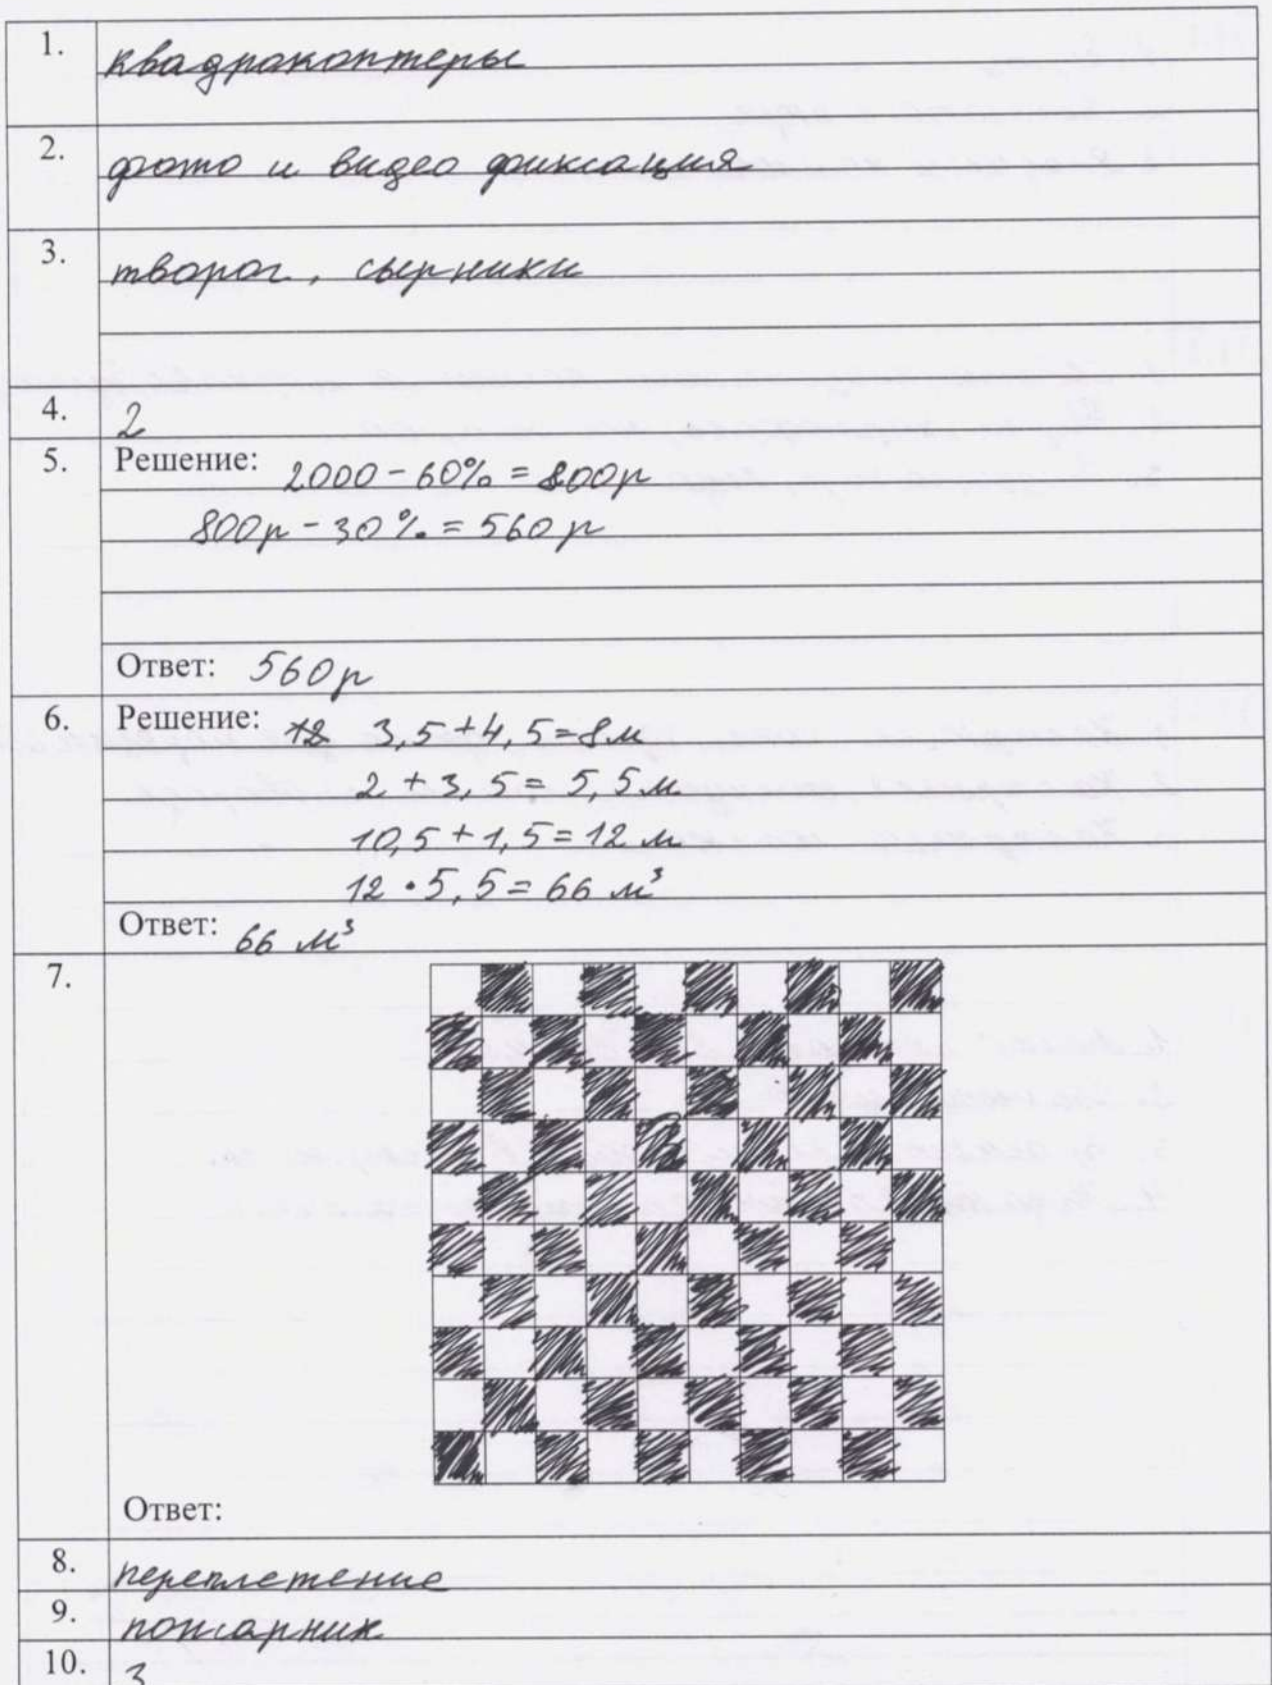 1. квадракоптеры
2. фото и видео фиксация
3. творог, сырники
4. 2
5. Решение: 2000 - 60% = 800р
800р - 30% = 560р
Ответ: 560р
6. Решение: 12 3,5 + 4,5 = 8м
2 + 3,5 = 5,5м
10,5 + 1,5 = 12 м
12 • 5,5 = 66 м³
Ответ: 66 м³
7.
Ответ:
8. переплетение
9. пожарник
10. 3